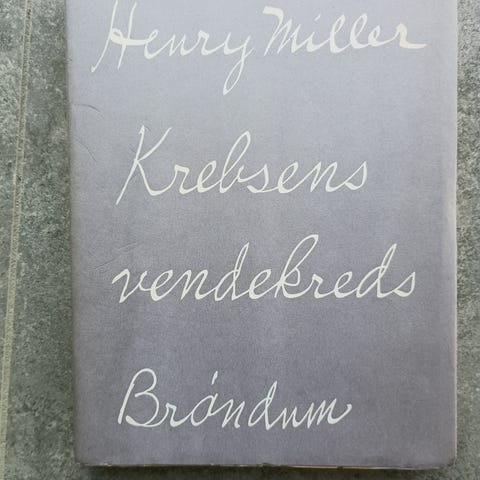 Henry Miller
Krebsens
vendekreds
Bróndum